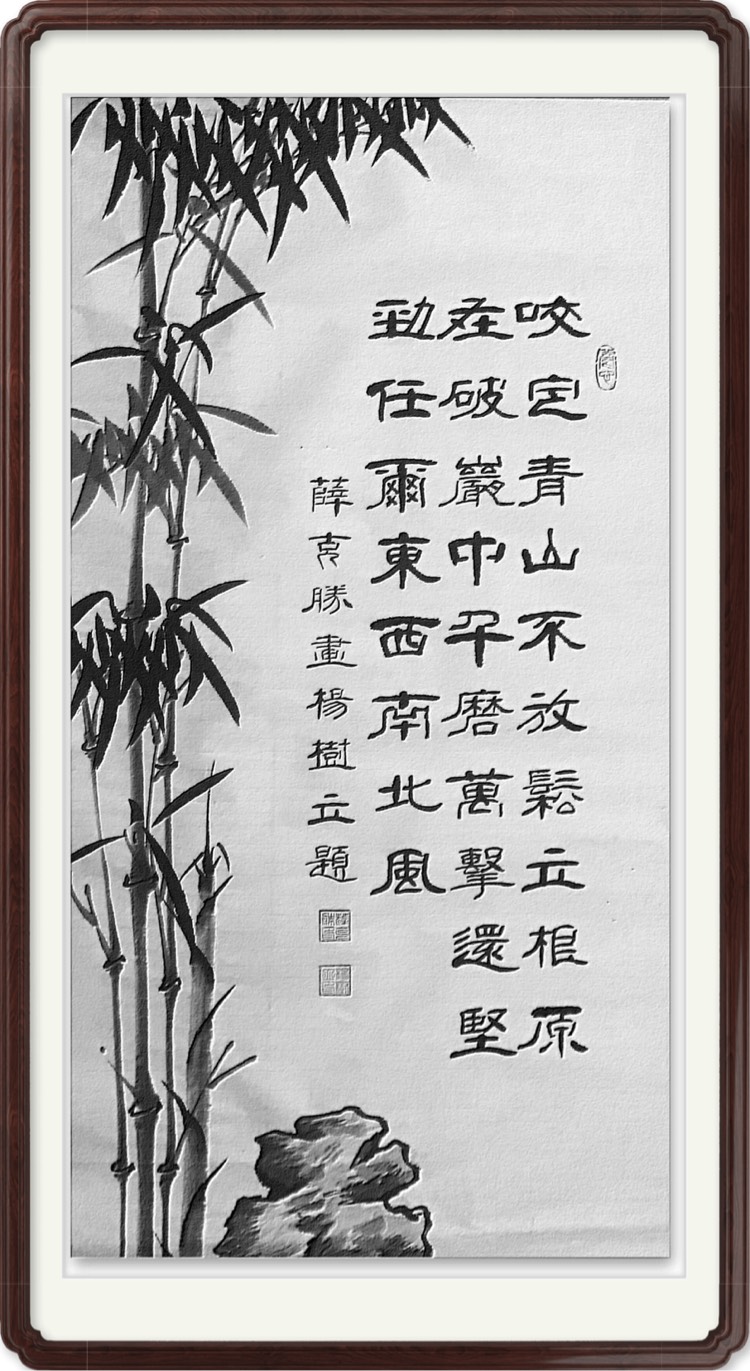 咬定青山不放鬆立根原
在破巖中千磨萬擊還堅
勁任爾東西南北風
薛克勝畫楊樹立題